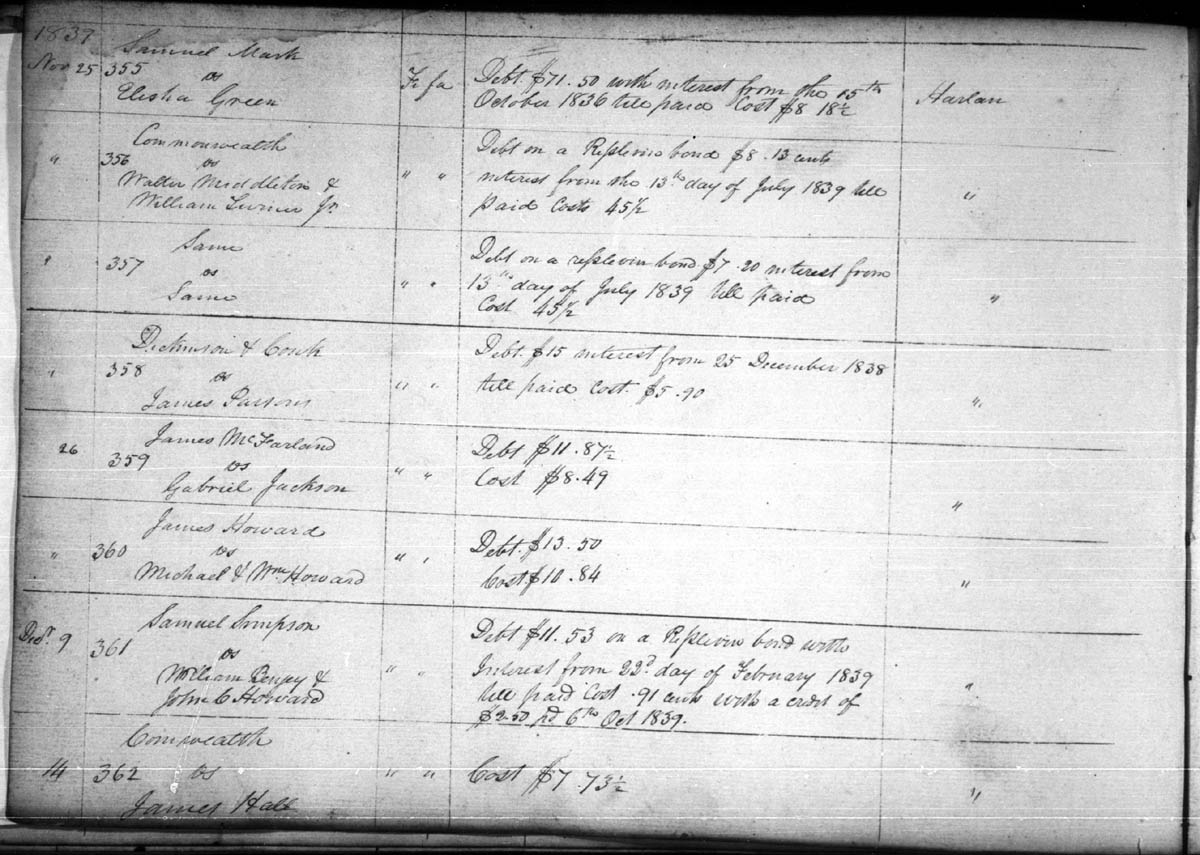 1839
Samuel Mark
Nov 25 355 vs Fi fa Debt $71.50 with interest from the 15th
Elisha Green October 1836 till paid Cost $8 18½ Harlan
Commonwealth Debt on a Replevin bond $8.13 cents
" 356 vs " " interest from the 13th day of July 1839 till "
Walter Middleton & paid Costs 45½
William Turner Jr.
Same Debt on a replevin bond $7.20 interest from
" 357 vs " " 13th day of July 1839 till paid "
Same Cost 45½
Dickinson & Debt. $15 interest from 25 December 1838
" 358 vs " " till paid Cost. $5.90 "
James Parsons
James McFarland Debt $11.87½
26 359 vs " " Cost $8.49 "
Gabriel Jackson
James Howard Debt. $13.50
" 360 vs " " Cost $10.84 "
Michael & Wm Howard
Samuel Simpson Debt $11.53 on a Replevin bond with
Decr. 9 361 vs " " Interest from 22d day of February 1839 "
William & till paid Cost .91 cents with a credit of
John C Howard $2.50 pd 6th Oct 1839.
Comwealth
14 362 vs " " Cost $7.73½ "
James Hall